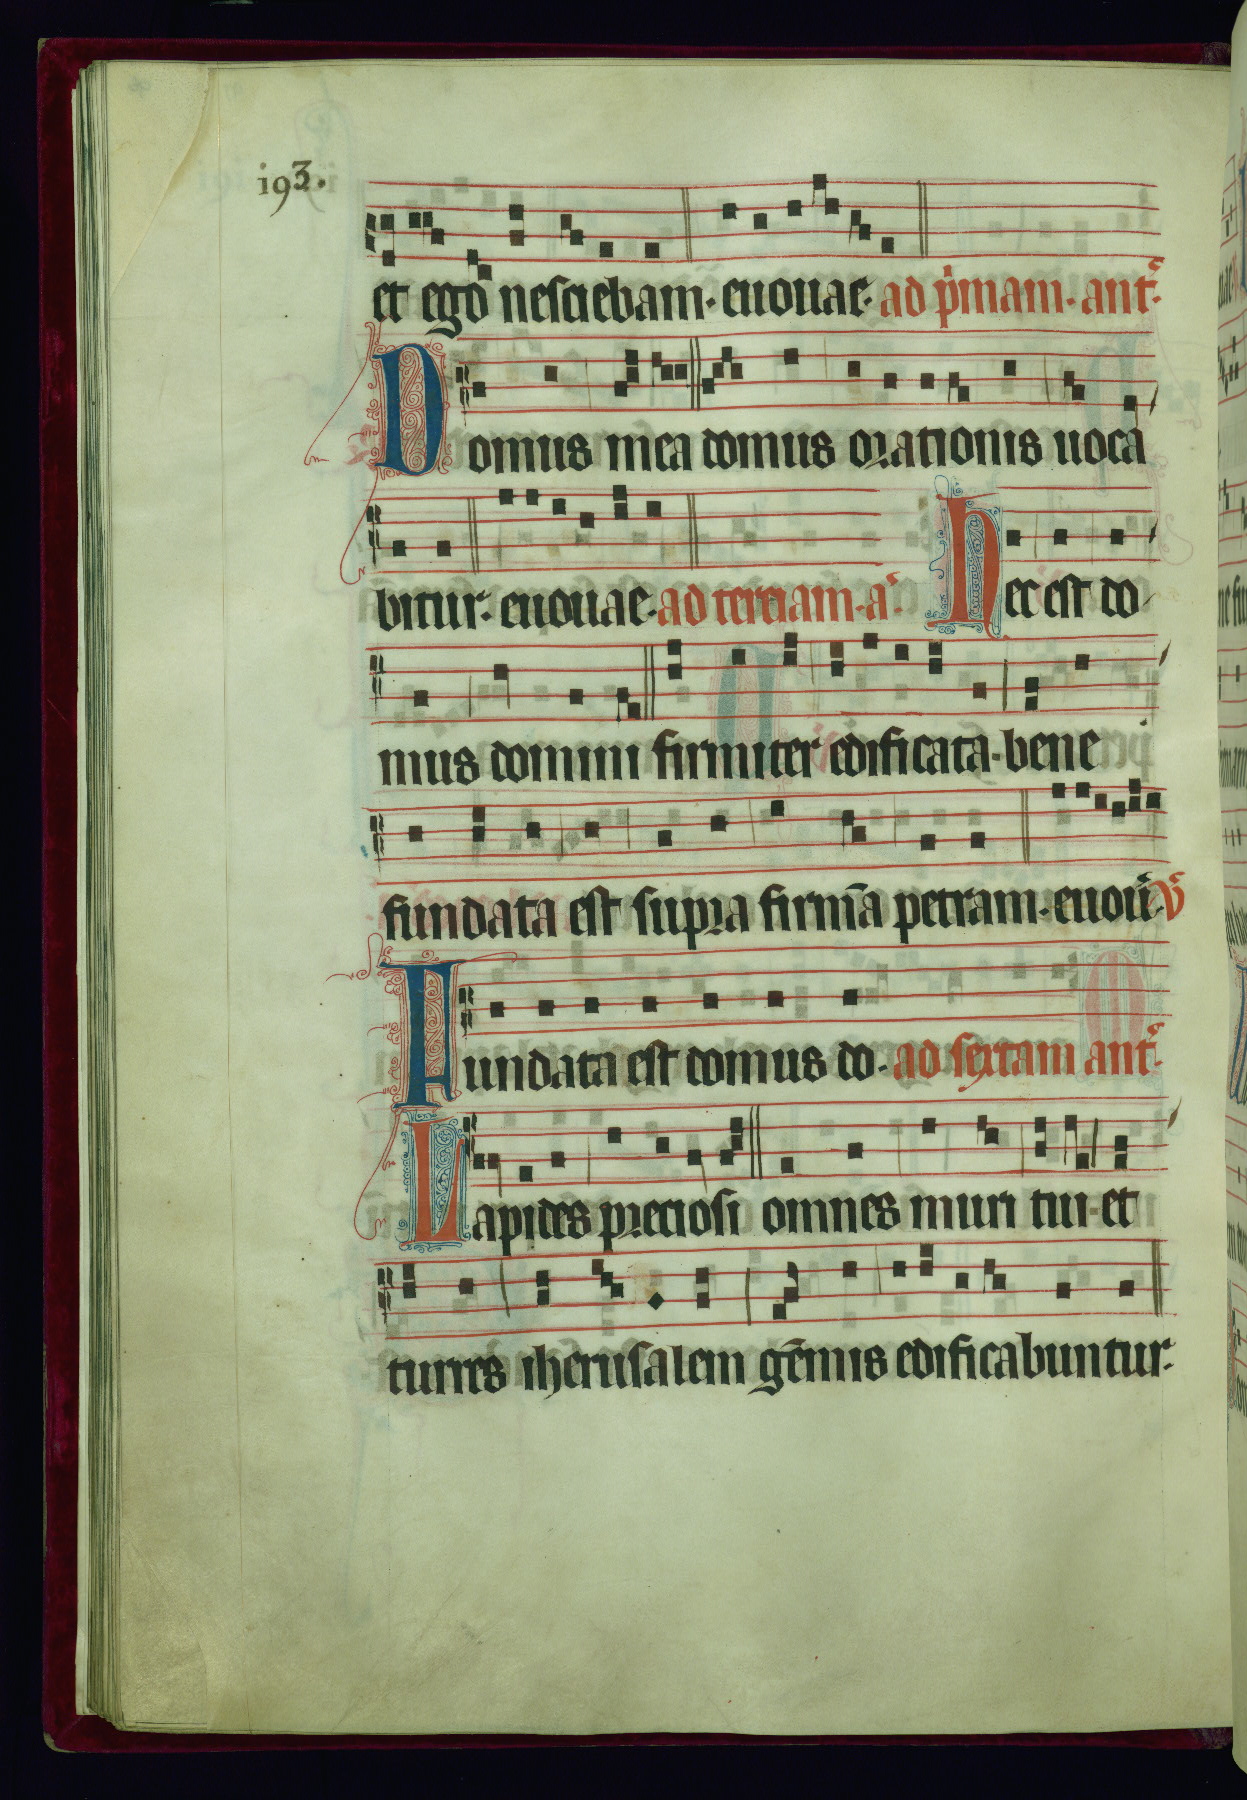 193.
et ego nesciebam. euouae. ad p̄mam. ant̄.
Domus mea domus orationis uoca
bitur. euouae. ad terciam. a. Hec est do
mus domini firmiter edificata. bene
fundata est supra firmā petram. euoū. V
Fundata est domus do. ad sextam ant̄.
Lapides preciosi omnes muri tui. et
turres iherusalem gēmis edificabuntur.